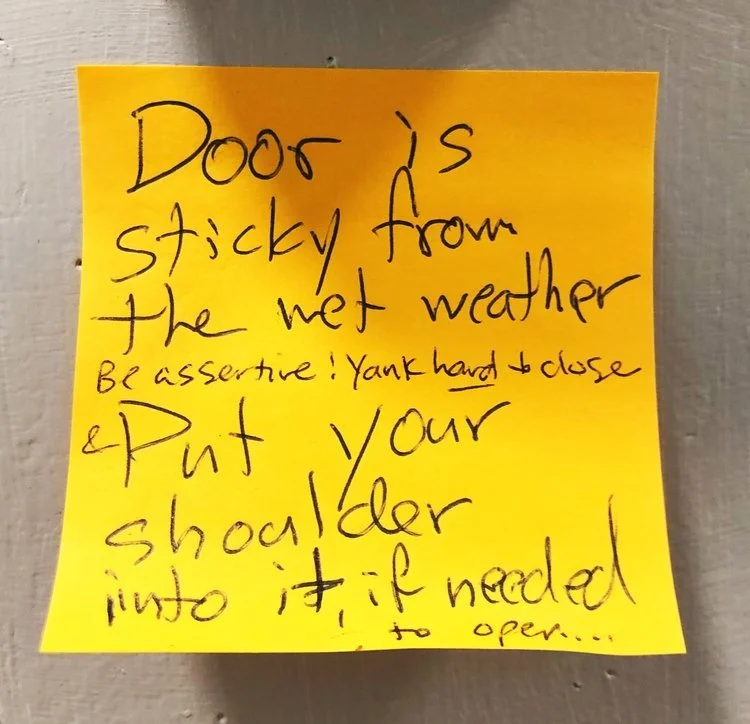 Door is
sticky from
the wet weather
Be assertive! Yank hard to close
& Put your
shoulder
into it, if needed
to open....